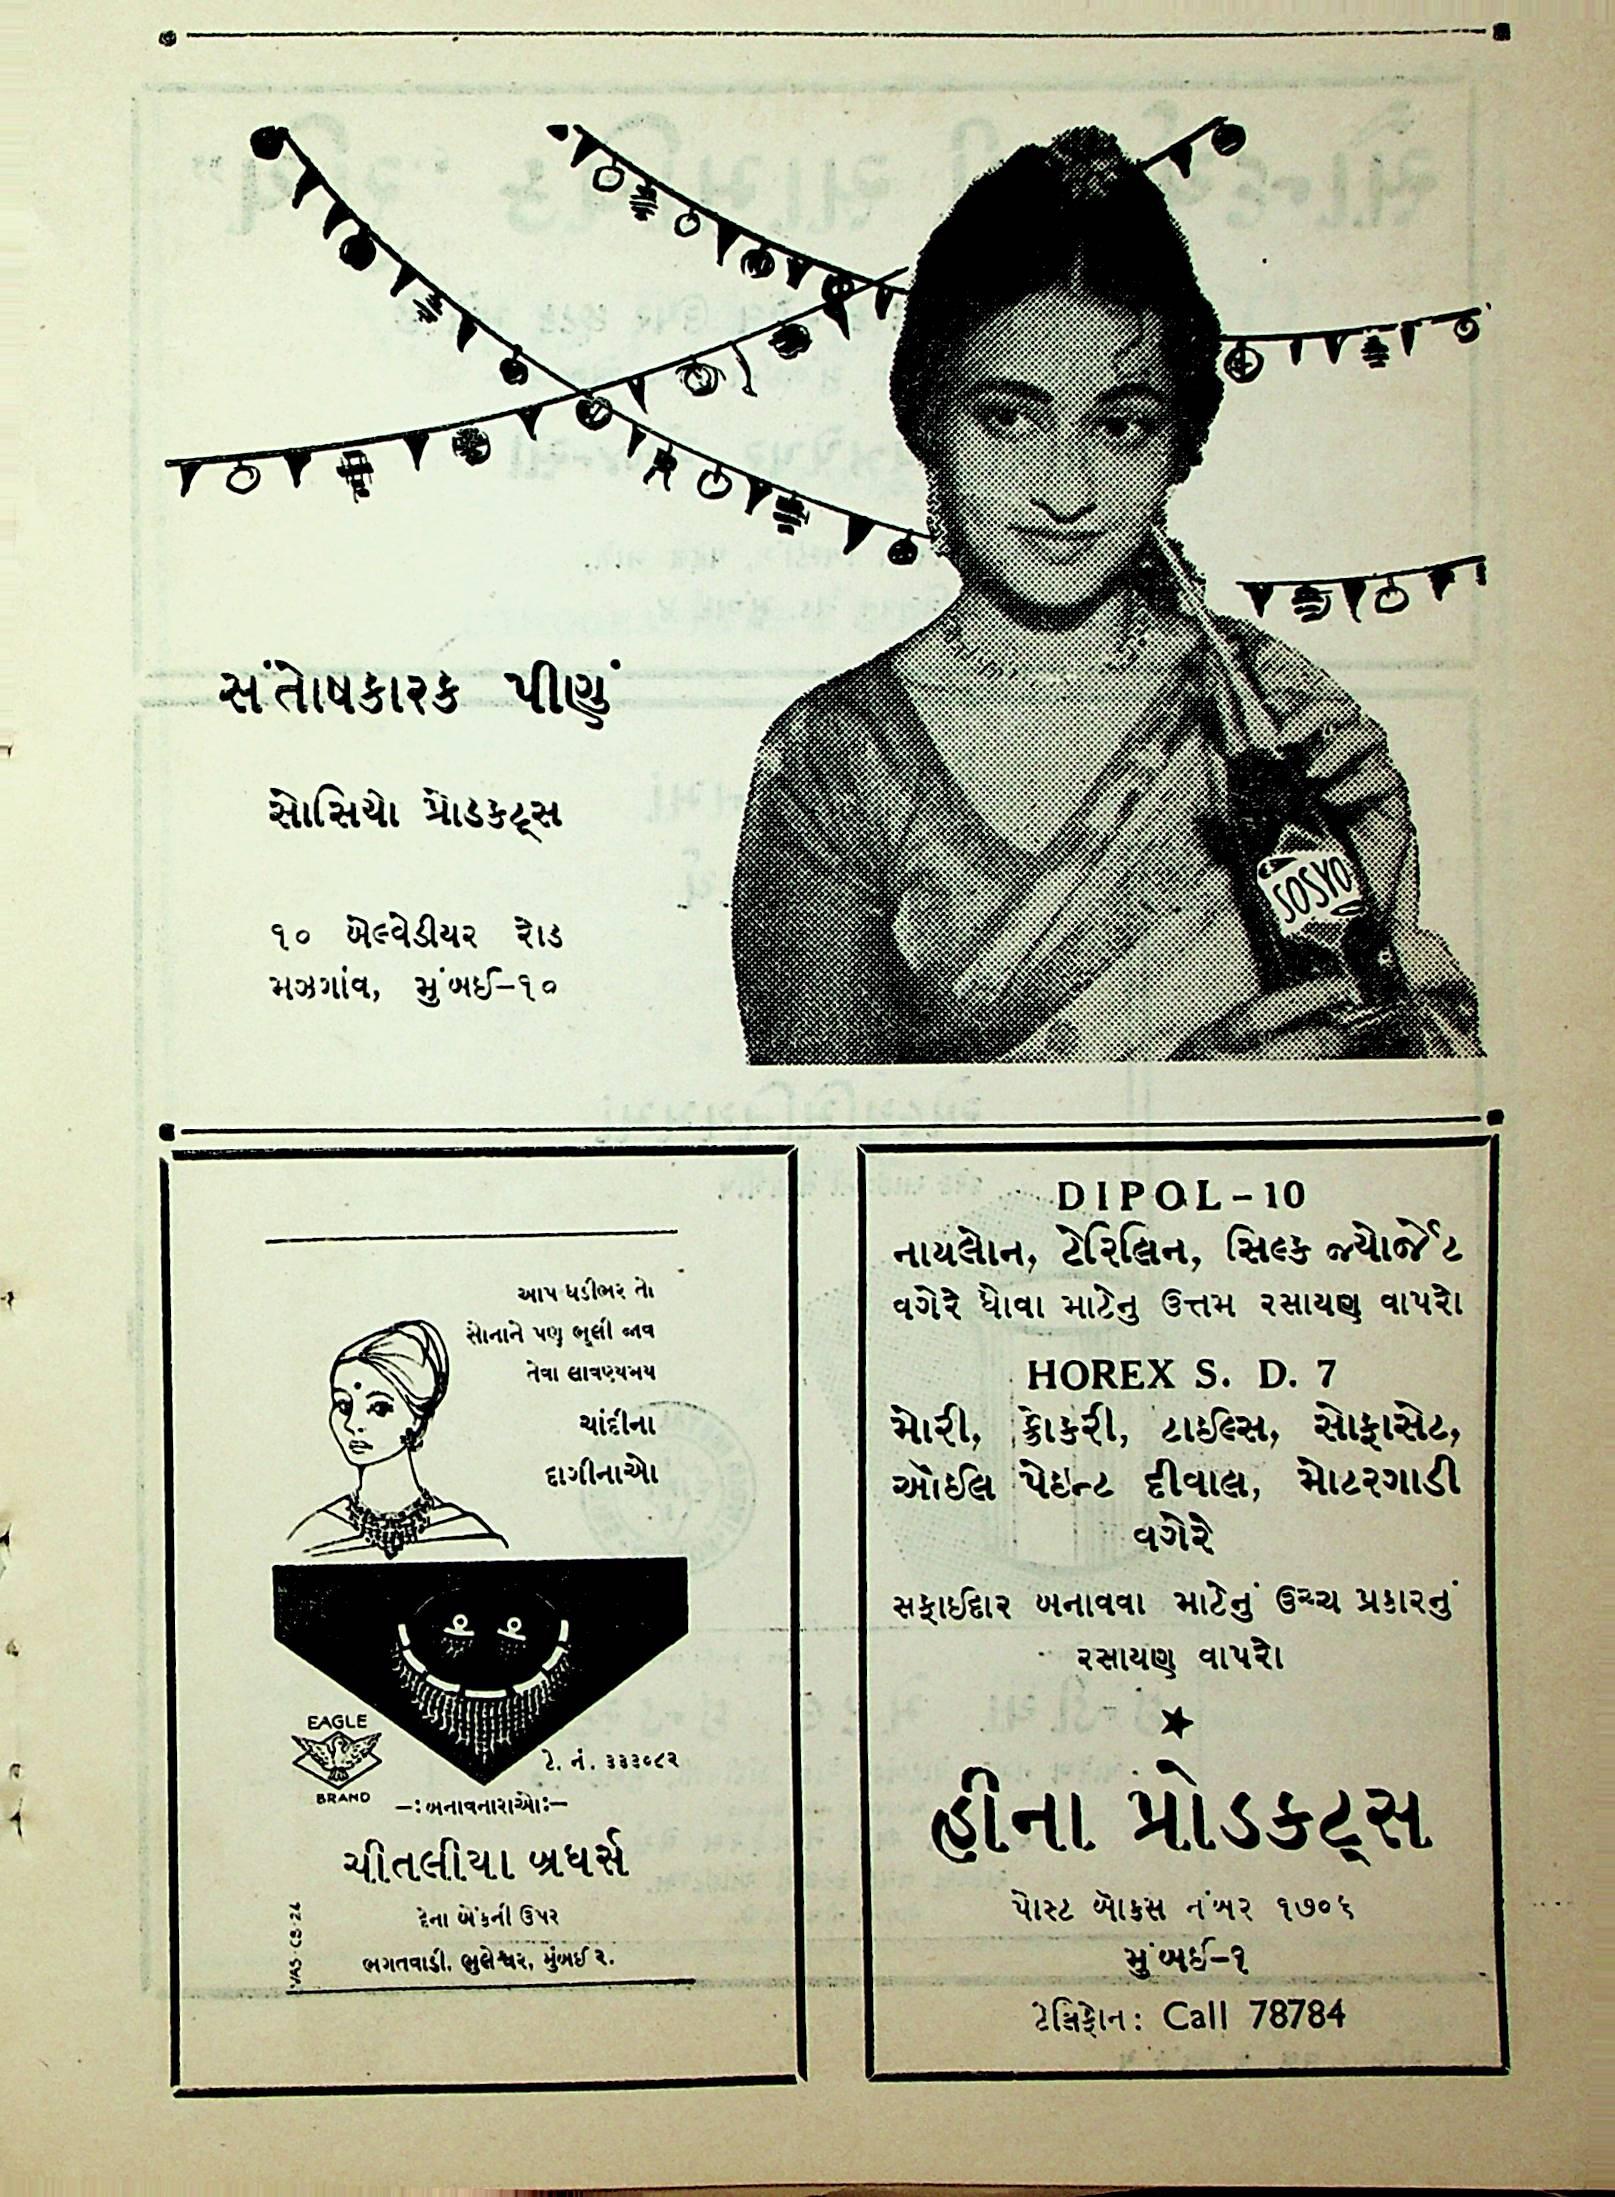 સંતોષકારક પીણું
સોસિયો પ્રોડકટ્સ
૧૦ બેલ્વેડીયર રોડ
મઝગાંવ, મુંબઈ-૧૦
SOSYO
આપ ઘડીભર તો
સોનાને પણ ભૂલી જાવ
તેવા લાવણ્યમય
ચાંદીના
દાગીનાઓ
EAGLE
BRAND
ટે. નં. ૩૩૩૦૮૨
-:બનાવનારાઓ:-
ચીતલીયા બ્રધર્સ
દેના બેંકની ઉપર
ભગતવાડી, ભુલેશ્વર, મુંબઈ ૨.
DIPOL-10
નાયલોન, ટેરિલિન, સિલ્ક જ્યોર્જેટ
વગેરે ધોવા માટેનુ ઉત્તમ રસાયણ વાપરો
HOREX S. D. 7
મોરી, ક્રોકરી, ટાઈલ્સ, સોફાસેટ,
ઑઈલ પેઇન્ટ દીવાલ, મોટરગાડી
વગેરે
સફાઈદાર બનાવવા માટેનું ઉચ્ચ પ્રકારનું
રસાયણ વાપરો
હીના પ્રોડકટ્સ
પોસ્ટ બૉકસ નંબર ૧૭૦૬
મુંબઈ-૧
ટેલિફોન: Call 78784